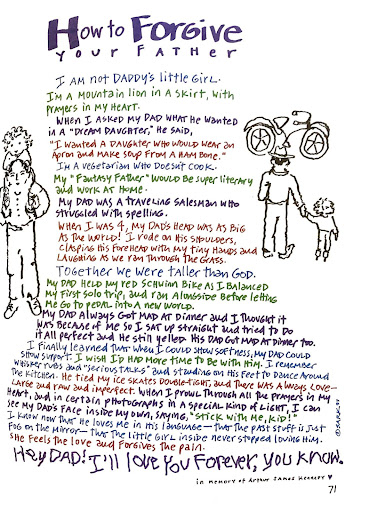 How to Forgive
YOUR FATHER
I AM NOT DADDY'S LITTLE GIRL.
I'M A MOUNTAIN LION IN A SKIRT, WITH
PRAYERS IN MY HEART.
WHEN I ASKED MY DAD WHAT HE WANTED
IN A "DREAM DAUGHTER," HE SAID,
"I WANTED A DAUGHTER WHO WOULD WEAR AN
APRON AND MAKE SOUP FROM A HAM BONE."
I'M A VEGETARIAN WHO DOESN'T COOK.
MY "FANTASY FATHER" WOULD BE SUPER LITERARY
AND WORK AT HOME.
MY DAD WAS A TRAVELING SALESMAN WHO
STRUGGLED WITH SPELLING.
WHEN I WAS 4, MY DAD'S HEAD WAS AS BIG
AS THE WORLD! I RODE ON HIS SHOULDERS,
CLASPING HIS FOREHEAD WITH MY TINY HANDS AND
LAUGHING AS WE RAN THROUGH THE GRASS.
TOGETHER WE WERE TALLER THAN GOD.
MY DAD HELD MY RED SCHWINN BIKE AS I BALANCED
MY FIRST SOLO TRIP, AND RAN ALONGSIDE BEFORE LETTING
ME GO TO PEDAL INTO A NEW WORLD.
MY DAD ALWAYS GOT MAD AT DINNER AND I THOUGHT IT
WAS BECAUSE OF ME SO I SAT UP STRAIGHT AND TRIED TO DO
IT ALL PERFECT AND HE STILL YELLED. HIS DAD GOT MAD AT DINNER TOO.
I FINALLY LEARNED THAT WHEN I COULD SHOW SOFTNESS, MY DAD COULD
SHOW SUPPORT. I WISH I'D HAD MORE TIME TO BE WITH HIM. I REMEMBER
WHISKER RUBS AND "SERIOUS TALKS" AND STANDING ON HIS FEET TO DANCE AROUND
THE KITCHEN. HE TIED MY ICE SKATES DOUBLE-TIGHT, AND THERE WAS ALWAYS LOVE—
LARGE AND RAW AND IMPERFECT. WHEN I PROWL THROUGH ALL THE PRAYERS IN MY
HEART, AND IN CERTAIN PHOTOGRAPHS IN A SPECIAL KIND OF LIGHT, I CAN
SEE MY DAD'S FACE INSIDE MY OWN, SAYING, "STICK WITH ME, KID!"
I KNOW NOW THAT HE LOVES ME IN HIS LANGUAGE—THAT THE PAST STUFF IS JUST
FOG ON THE MIRROR—THAT THE LITTLE GIRL INSIDE NEVER STOPPED LOVING HIM.
SHE FEELS THE LOVE AND FORGIVES THE PAIN.
HEY DAD! I'LL LOVE YOU FOREVER, YOU KNOW.
IN MEMORY OF ARTHUR JAMES KENNEDY ♥
©SARK
71